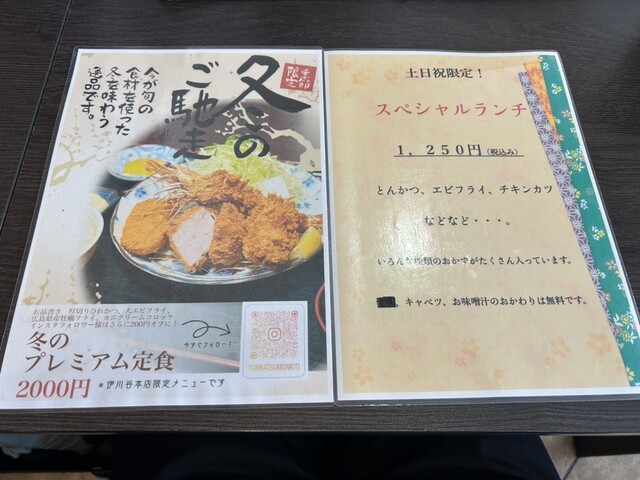 季節
限定
冬の
ご馳走
今が旬の
食材を使った
冬を味わう
逸品です。
お品書き 厚切りひれかつ、大エビフライ、
広島県産牡蠣フライ、カニクリームコロッケ
インスタフォロワー様はさらに200円オフに!
今すぐフォロー!
冬の
プレミアム定食
2000円
*伊川谷本店限定メニューです
TONKATSUMONKITI
土日祝限定!
スペシャルランチ
1,250円(税込み)
とんかつ、エビフライ、チキンカツ
などなど・・・。
いろんな種類のおかずがたくさん入っています。
、キャベツ、お味噌汁のおかわりは無料です。